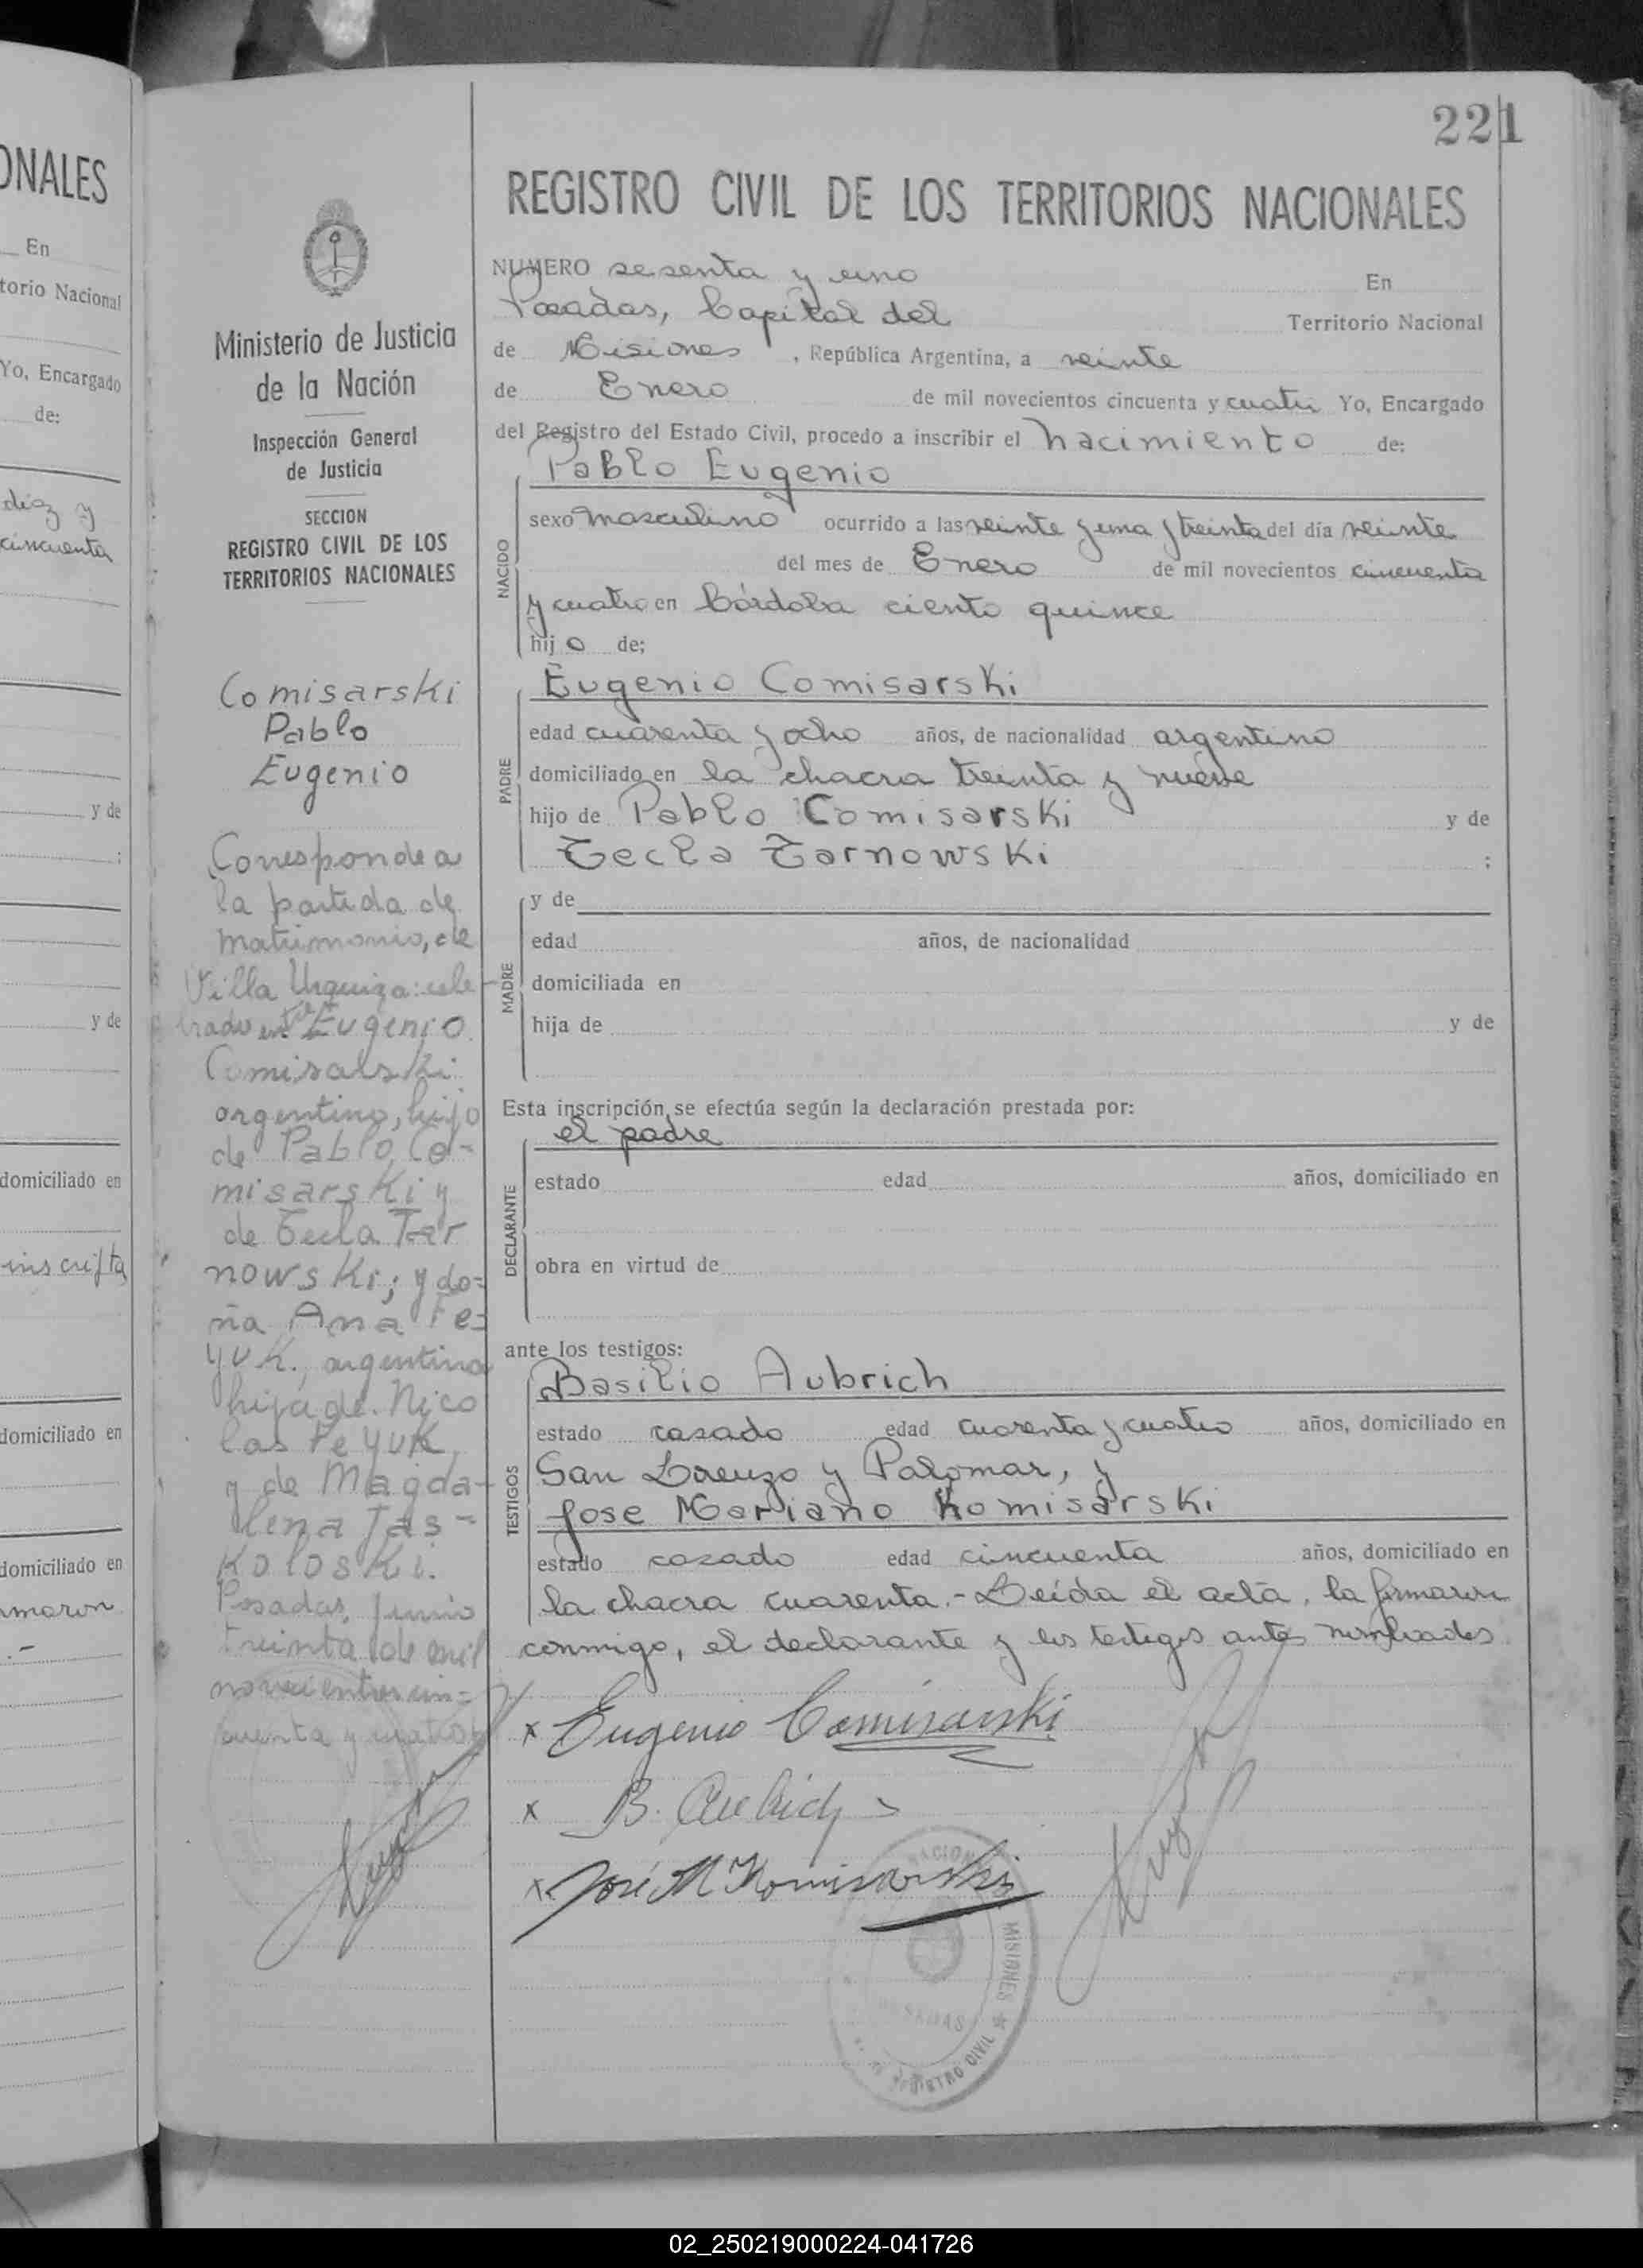 ONALES
En
torio Nacional
Yo, Encargado
de:
diez y
cincuenta
y de
;
y de
domiciliado en
inscripta
domiciliado en
domiciliado en
maron
.-
221
Ministerio de Justicia
de la Nación
Inspección General
de Justicia
SECCION
REGISTRO CIVIL DE LOS
TERRITORIOS NACIONALES
Comisarski
Pablo
Eugenio
Corresponde a
la partida de
matrimonio, de
Villa Urquiza: cele-
brado entre Eugenio
Comisalski
argentino, hijo
de Pablo Co-
misarski y
de Tecla Tar
nowski; y do=
ña Ana Fe=
yuk, argentina
hija de Nico
las Feyuk
y de Magda-
lena Jas-
koloski.
Posadas, Junio
treinta de mil
novecientos cin=
cuenta y cuatro
REGISTRO CIVIL DE LOS TERRITORIOS NACIONALES
NUMERO sesenta y uno En
Posadas, Capital del Territorio Nacional
de Misiones, República Argentina, a veinte
de Enero de mil novecientos cincuenta y cuatro Yo, Encargado
del Registro del Estado Civil, procedo a inscribir el nacimiento de:
NACIDO
Pablo Eugenio
sexo masculino ocurrido a las veinte y una y treinta del día veinte
del mes de Enero de mil novecientos cincuenta
y cuatro en Córdoba ciento quince
hijo de;
PADRE
Eugenio Comisarski
edad cuarenta y ocho años, de nacionalidad argentino
domiciliado en la chacra treinta y nueve
hijo de Pablo Comisarski y de
Tecla Tarnowski ;
MADRE
y de
edad años, de nacionalidad
domiciliada en
hija de y de
Esta inscripción se efectúa según la declaración prestada por:
DECLARANTE
el padre
estado edad años, domiciliado en
obra en virtud de
ante los testigos:
TESTIGOS
Basilio Aubrich
estado casado edad cuarenta y cuatro años, domiciliado en
San Lorenzo y Palomar, y
Jose Mariano Komisarski
estado casado edad cincuenta años, domiciliado en
la chacra cuarenta.- Leída el acta, la firmaron
conmigo, el declarante y los testigos antes nombrados.
x Eugenio Comisarski
x B. Aubrich
x José M Komisarski
NACION
MISIONES
POSADAS
REGISTRO CIVIL
02_250219000224-041726